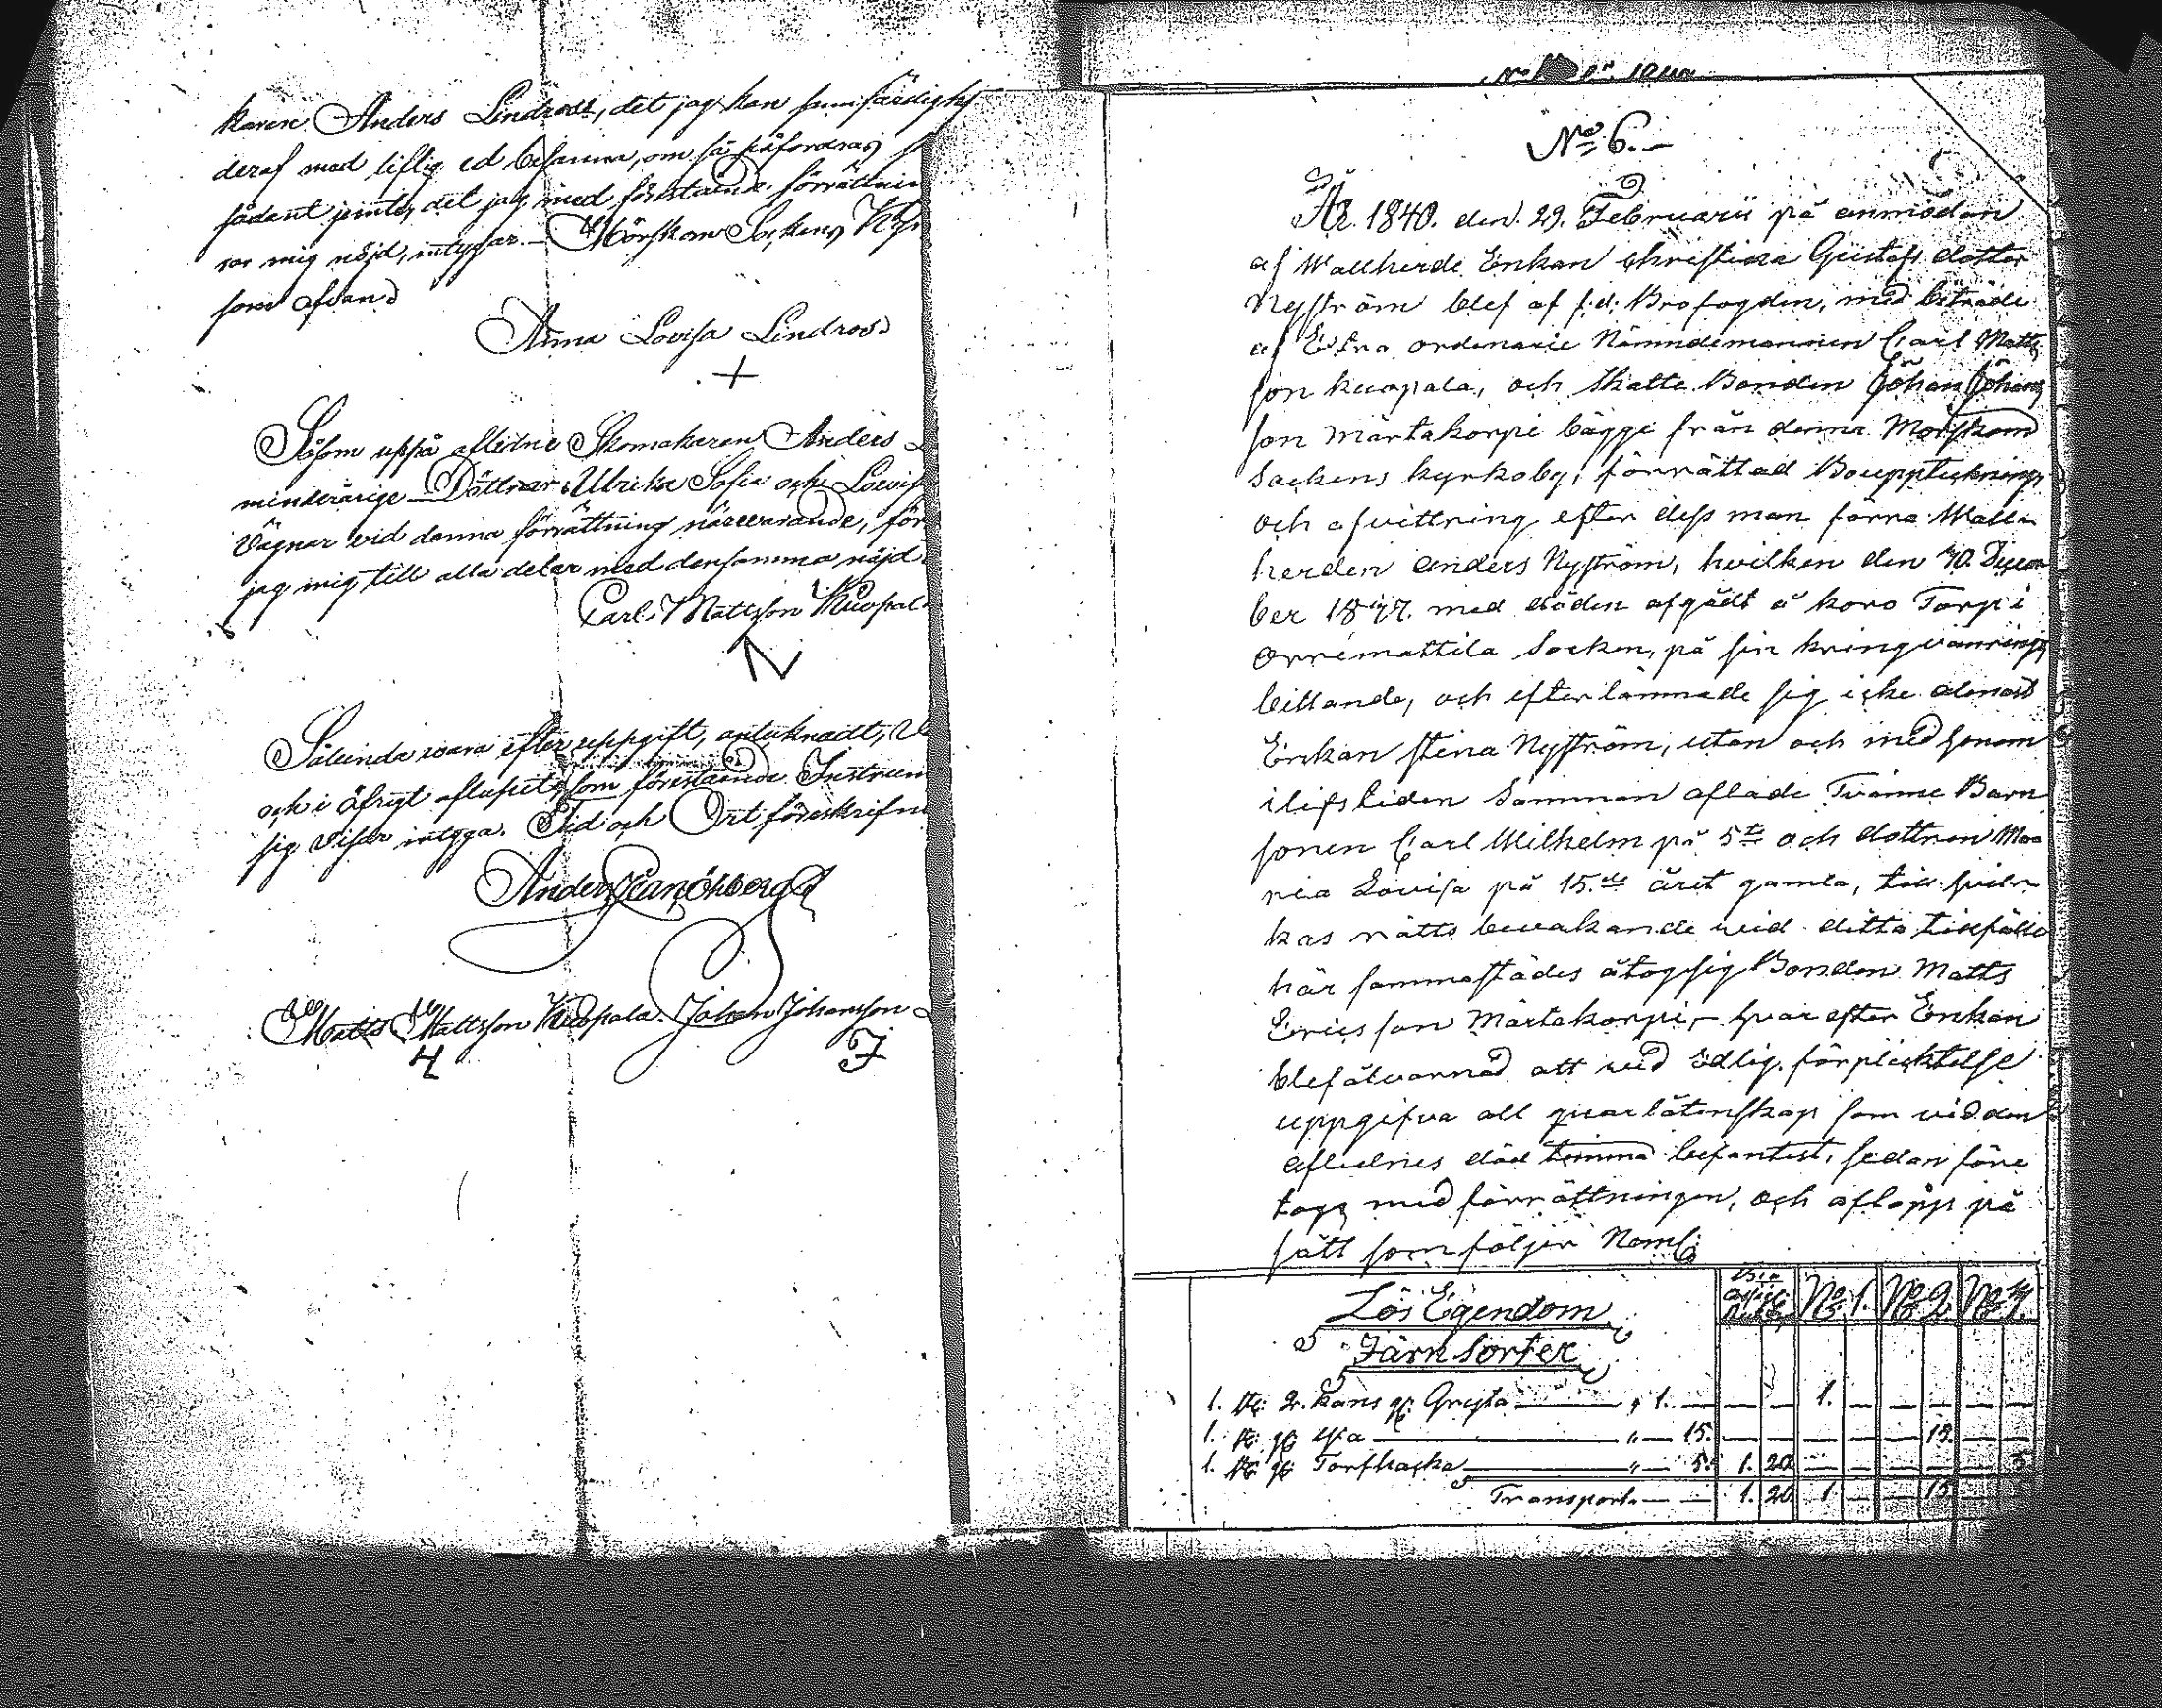 karen Anders Lindroos, det jag kan samfärdigh
deraf med liflig ed besanna, om så påfordras,
sådant jemte, det jag med förestående förrättnin
var mig nöjd, intygar. Mörskom Sockens Kyr
som ofvan
Anna Lovisa Lindroos
+
Såsom uppå aflidne Skomakeren Anders
minderårige Döttrar Ulrika Sofia och Lovis
Vägnar vid denna förrättning närvarande, för
jag mig till alla delar med densamma nöjd
Carl Mattsson Kuopal
Sålunda vara efter uppgift, antecknadt,
och i öfrigt aflupit, som förestående Instrum
sig visar intyga. Tid och Ort föreskrifne
Anders Granöhberg
Matts Mattsson Kuopala Johan Johansson
No 6.
År 1840. den 29. Februarii på anmodan
af Wallherde Enkan Christina Gustafs dotter
Nyström blef af f.d. Brofogden, med biträde
af Extra ordinarie Nämndemannen Carl Matts
son Kuopala, och Skatte Bonden Johan Johans
son Märtakorpi bägge från denna Mörskom
Sockens kyrkoby, förrättad Bouppteckning
och afvittring efter dess man förra Wall
herden Anders Nyström, hvilken den 10. Decem
ber med döden afgådt å koro Torp i
Orrimattila Socken, på sin kringvandring
bettlande, och efterlämnade sig icke allenast
Enkan Stina Nyström, utan och med honom
i lifstiden Samman aflade Tvänne Barn
sonen Carl Wilhelm på 5te och dottren Ma
ria Lovisa på 15.de året gamla, till hvil
kas rätts bevakande wid detta tillfälle
här sammastädes åtog sig Bonden Matts
Ericsson Märtakorpi, hvarefter Enkan
blef åtvarnad att wid Edlig förplicktelse
uppgifva all qvarlåtenskap som vid den
aflidnes död timma befantest, sedan före
togs med förrättningen, och aflopp på
sätt som följer Neml:
Lös Egendom No 1. No 2.
Järn Sorter
1. st. 2. kans gl. Gryta " 1. — — — 1. — — — — —
1. st. gl. yxa " — 15. — — — — — 15. — —
1. st. gl. Torfhacka " — 5. 1. 20 — — — — — 5
Transport — — 1. 20 1 — — 15 —